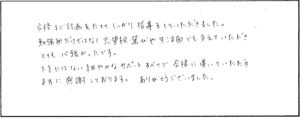 合格まで計画をたててしっかり指導をしていただきました。
勉強面だけではなく大学校選びや生活面でも支えていただき
とても心強かったです。
大手にはない細やかなサポートすべてで合格に導いていただき
本当に感謝しております。ありがとうございました。